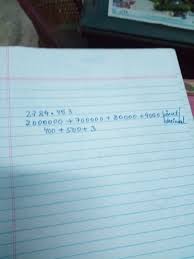 2784.453
2000000 + 700000 + 80000 + 4000
400 + 500 + 3